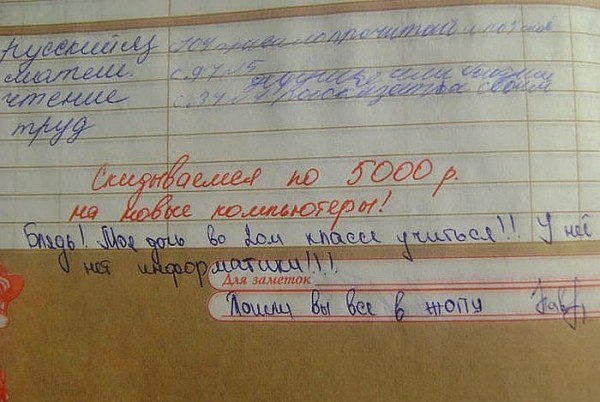 русский яз 104
матем. с. 97
чтение с. 34
труд
Скидываемся по 5000 р.
на новые компьютеры!
Блядь! Моя дочь во 2ом классе учиться!! У неё
нет информатики!!!
Для заметок
Пошли вы все в жопу